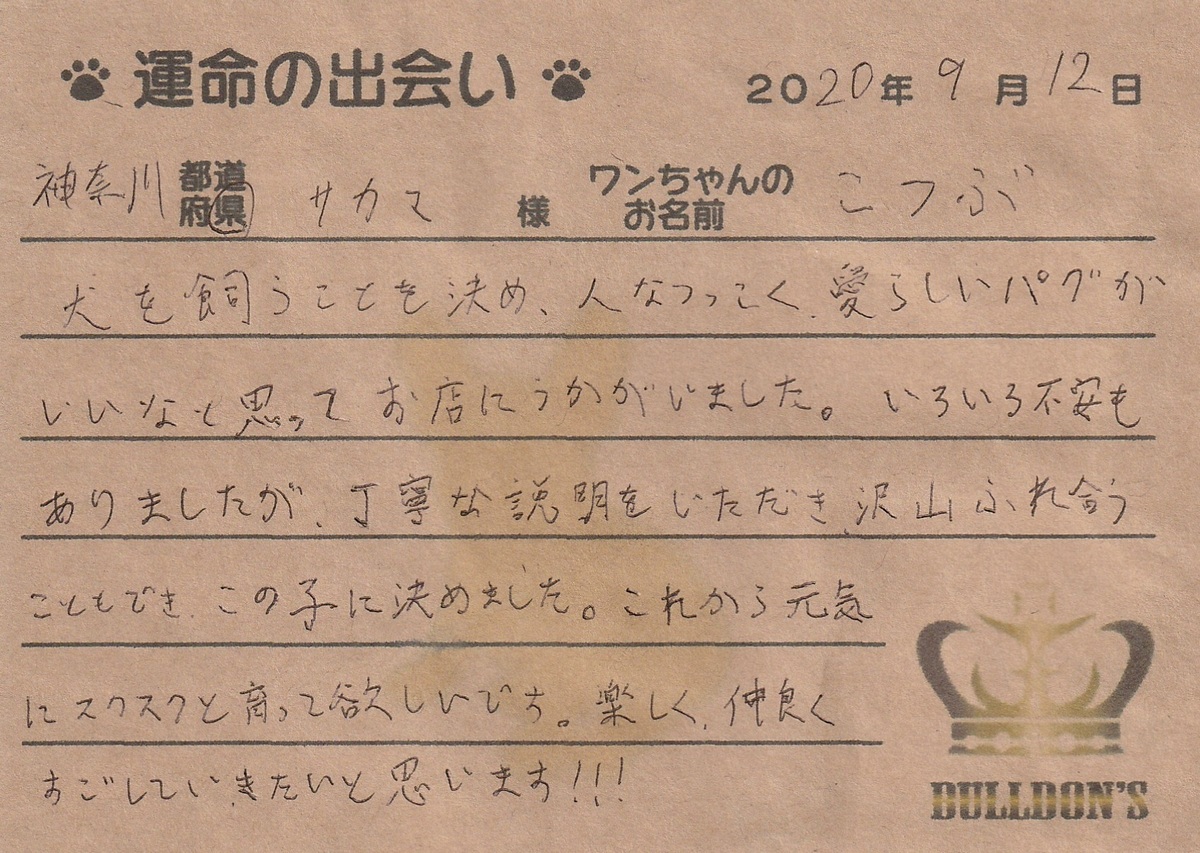 運命の出会い 2020年9月12日
神奈川 都道府県 サカマ 様 ワンちゃんのお名前 こつぶ
犬を飼うことを決め、人なつっこく、愛らしいパグが
いいなと思ってお店にうかがいました。いろいろ不安も
ありましたが、丁寧な説明をいただき、沢山ふれ合う
こともでき、この子に決めました。これから元気
にスクスクと育って欲しいです。楽しく、仲良く
すごしていきたいと思います!!!
BULLDON'S